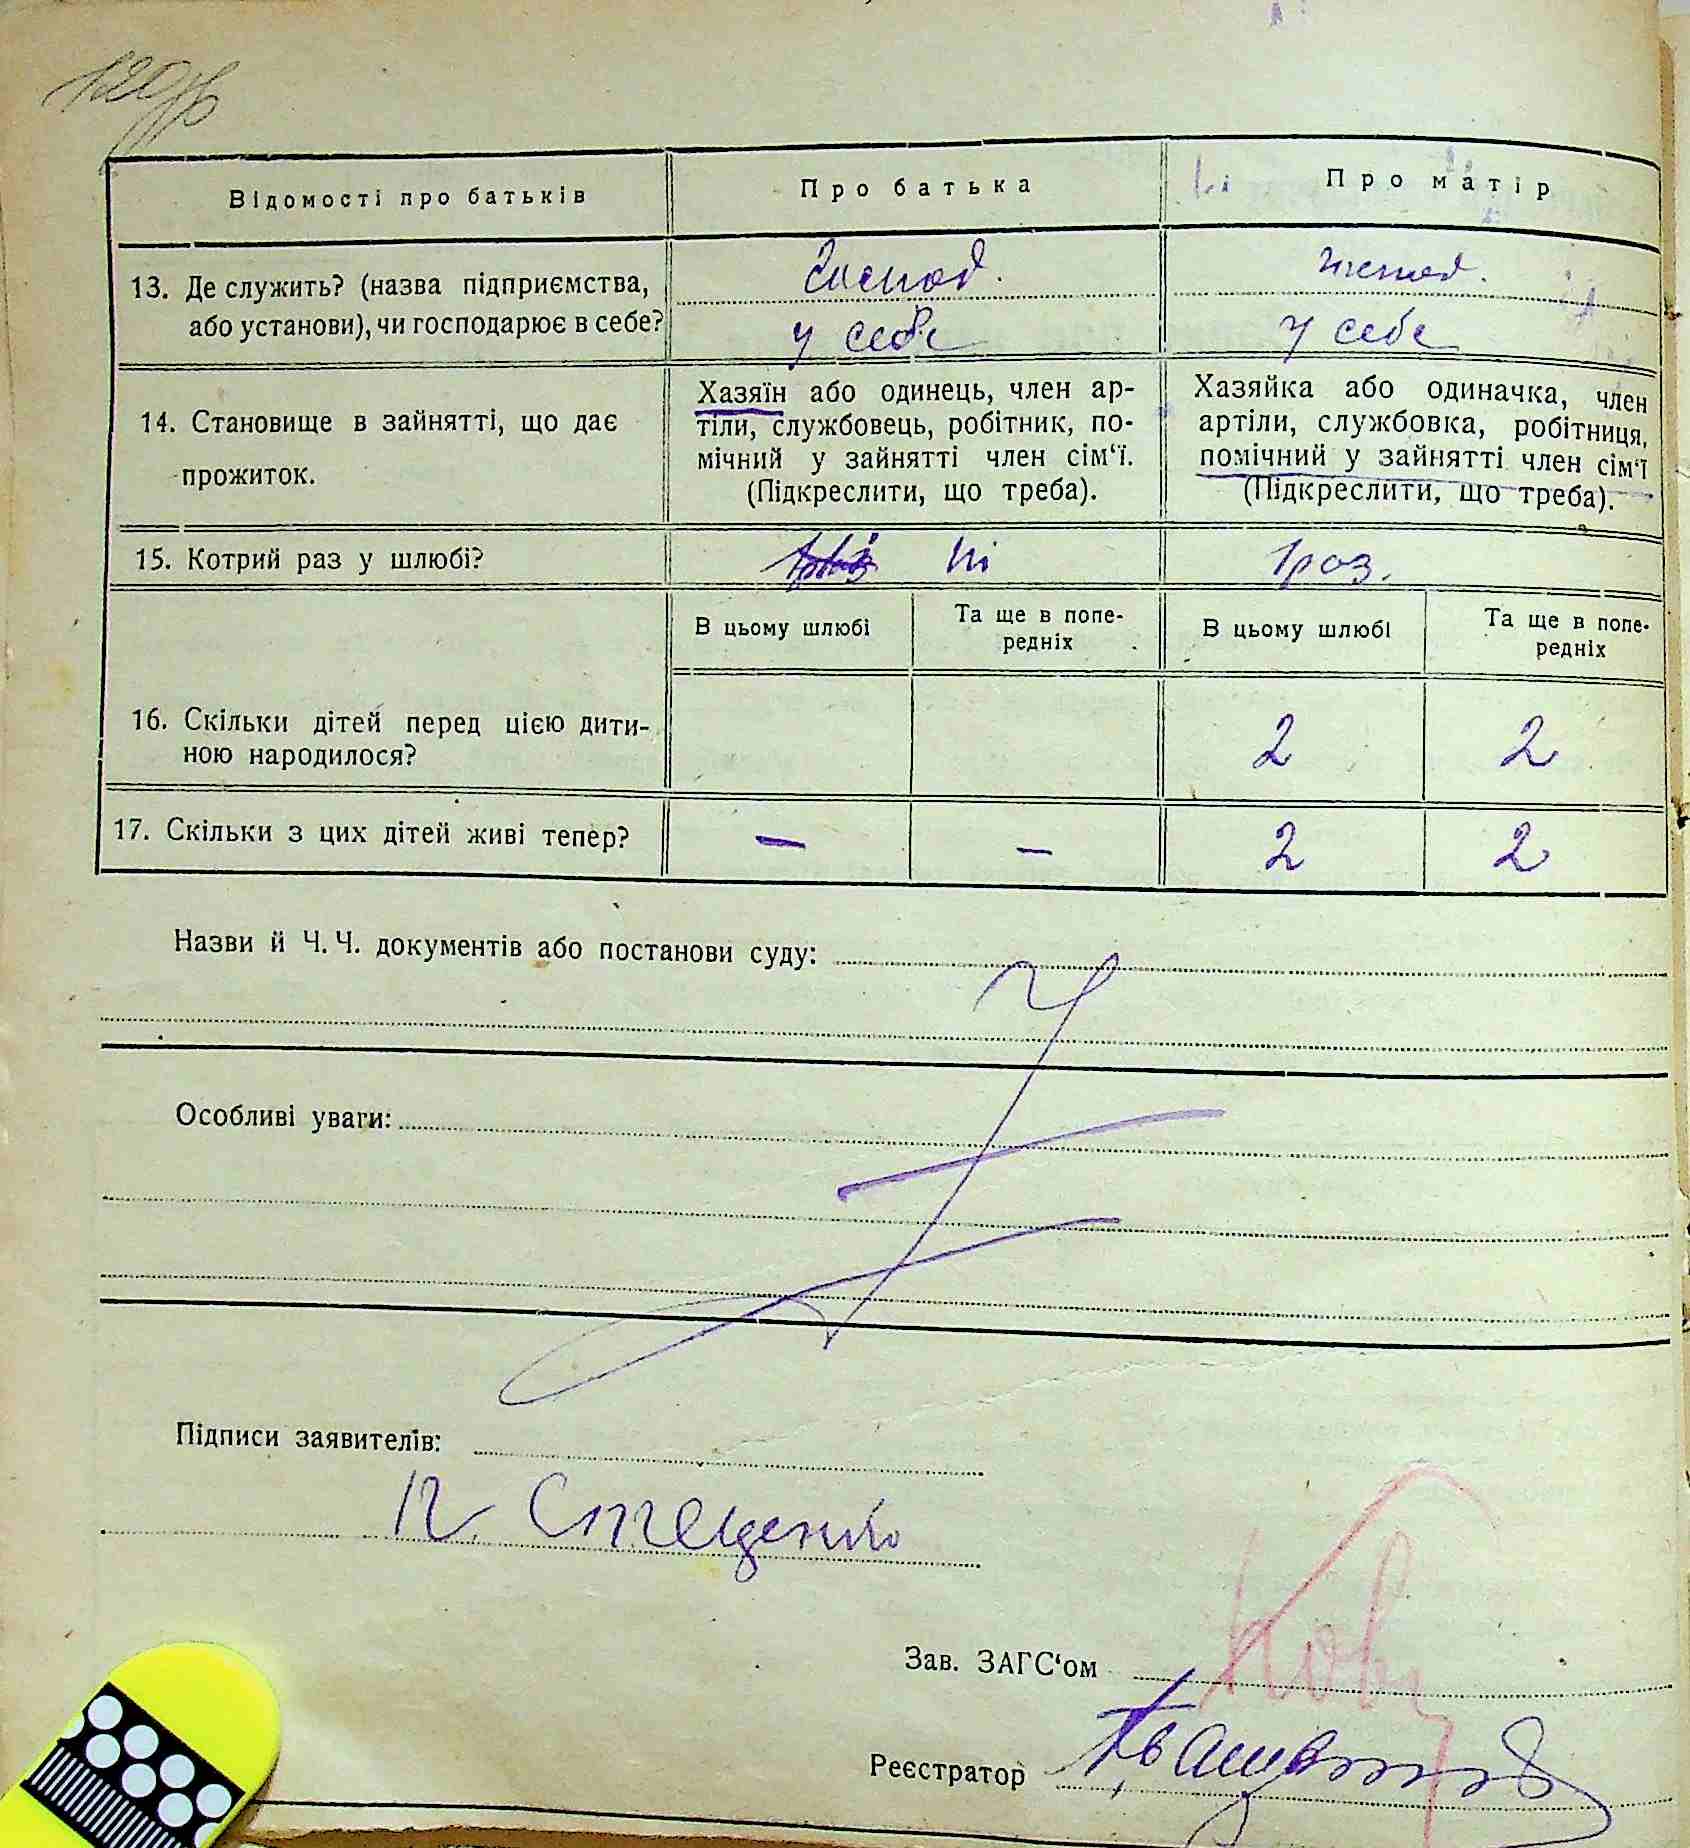 Відомості про батьків
Про батька
Про матір
13. Де служить? (назва підприємства, або установи), чи господарює в себе?
у себе
у себе
14. Становище в зайнятті, що дає прожиток.
Хазяїн або одинець, член ар-
тіли, службовець, робітник, по-
мічний у зайнятті член сім‘ї.
(Підкреслити, що треба).
Хазяйка або одиначка, член
артіли, службовка, робітниця,
помічний у зайнятті член сім‘ї
(Підкреслити, що треба).
15. Котрий раз у шлюбі?
1 раз.
В цьому шлюбі
Та ще в попе-
редніх
В цьому шлюбі
Та ще в попе-
редніх
16. Скільки дітей перед цією дити-
ною народилося?
2
2
17. Скільки з цих дітей живі тепер?
—
—
2
2
Назви й Ч. Ч. документів або постанови суду:
Особливі уваги:
Підписи заявителів:
П. Стеценко
Зав. ЗАГС‘ом
Реєстратор